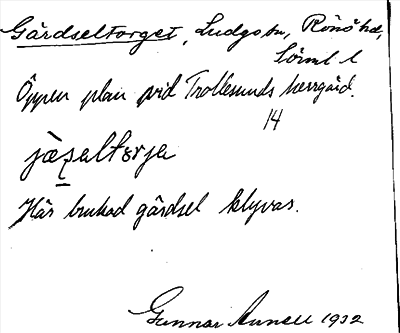 Gärdseltorget, Ludgo sn, Rönö hd,
Söml. l
Öppen plan vid Trollesunds herrgård.
14
jäṣeltorja
Här brukad gärdsel klyvas.
Gunnar 1932